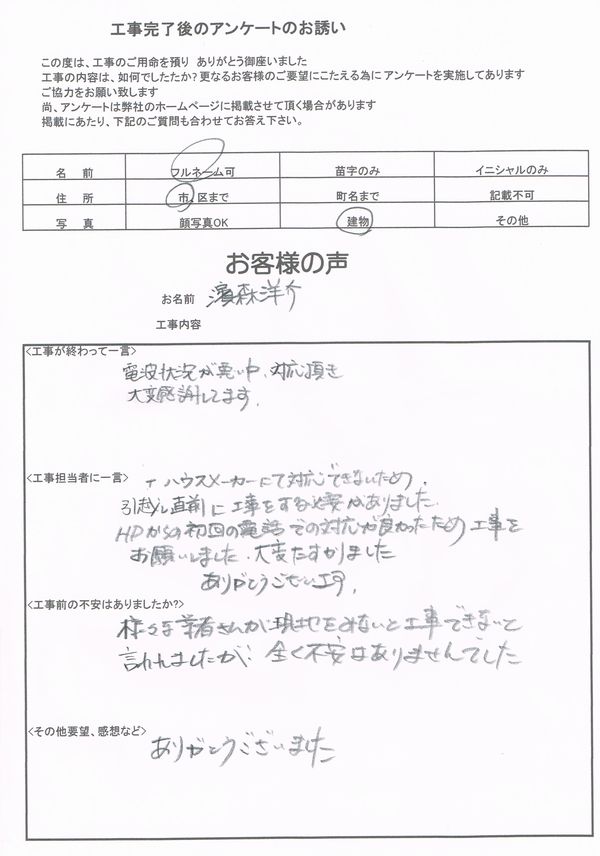 工事完了後のアンケートのお誘い
この度は、工事のご用命を預り ありがとう御座いました
工事の内容は、如何でしたたか？更なるお客様のご要望にこたえる為にアンケートを実施してあります
ご協力をお願い致します
尚、アンケートは弊社のホームページに掲載させて頂く場合があります
掲載にあたり、下記のご質問も合わせてお答え下さい。
名 前 フルネーム可 苗字のみ イニシャルのみ
住 所 市、区まで 町名まで 記載不可
写 真 顔写真OK 建物 その他
お客様の声
お名前 濱森洋介
工事内容
<工事が終わって一言>
電波状況が悪い中、対応頂き
大変感謝してます。
<工事担当者に一言>
ハウスメーカーにて対応できないため、
引越し直前に工事をする必要がありました。
HPからの初回の電話での対応が良かったため工事を
お願いしました、大変たすかりました
ありがとうございます。
<工事前の不安はありましたか?>
様々な業者さんが現地をみないと工事できないと
言われましたが、全く不安はありませんでした
<その他要望、感想など>
ありがとうございました